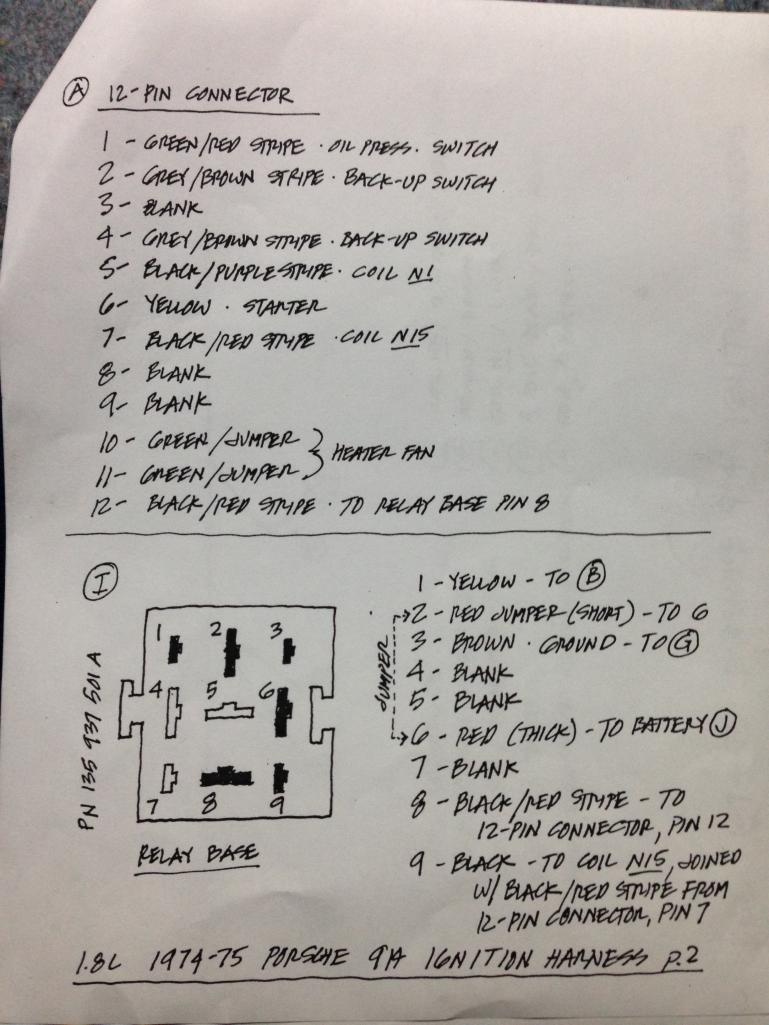 A 12-PIN CONNECTOR
1 - GREEN/RED STRIPE · OIL PRESS. SWITCH
2 - GREY/BROWN STRIPE · BACK-UP SWITCH
3 - BLANK
4 - GREY/BROWN STRIPE · BACK-UP SWITCH
5 - BLACK/PURPLE STRIPE · COIL N1
6 - YELLOW · STARTER
7 - BLACK/RED STRIPE · COIL N15
8 - BLANK
9 - BLANK
10 - GREEN/JUMPER } HEATER FAN
11 - GREEN/JUMPER
12 - BLACK/RED STRIPE · TO RELAY BASE PIN 8
I
1 2 3
4 5 6
7 8 9
PN 135 937 501 A
RELAY BASE
JUMPER
1 - YELLOW - TO B
2 - RED JUMPER (SHORT) - TO 6
3 - BROWN · GROUND - TO G
4 - BLANK
5 - BLANK
6 - RED (THICK) - TO BATTERY J
7 - BLANK
8 - BLACK/RED STRIPE - TO
12-PIN CONNECTOR, PIN 12
9 - BLACK - TO COIL N15, JOINED
W/ BLACK/RED STRIPE FROM
12-PIN CONNECTOR, PIN 7
1.8L 1974-75 PORSCHE 914 IGNITION HARNESS P.2